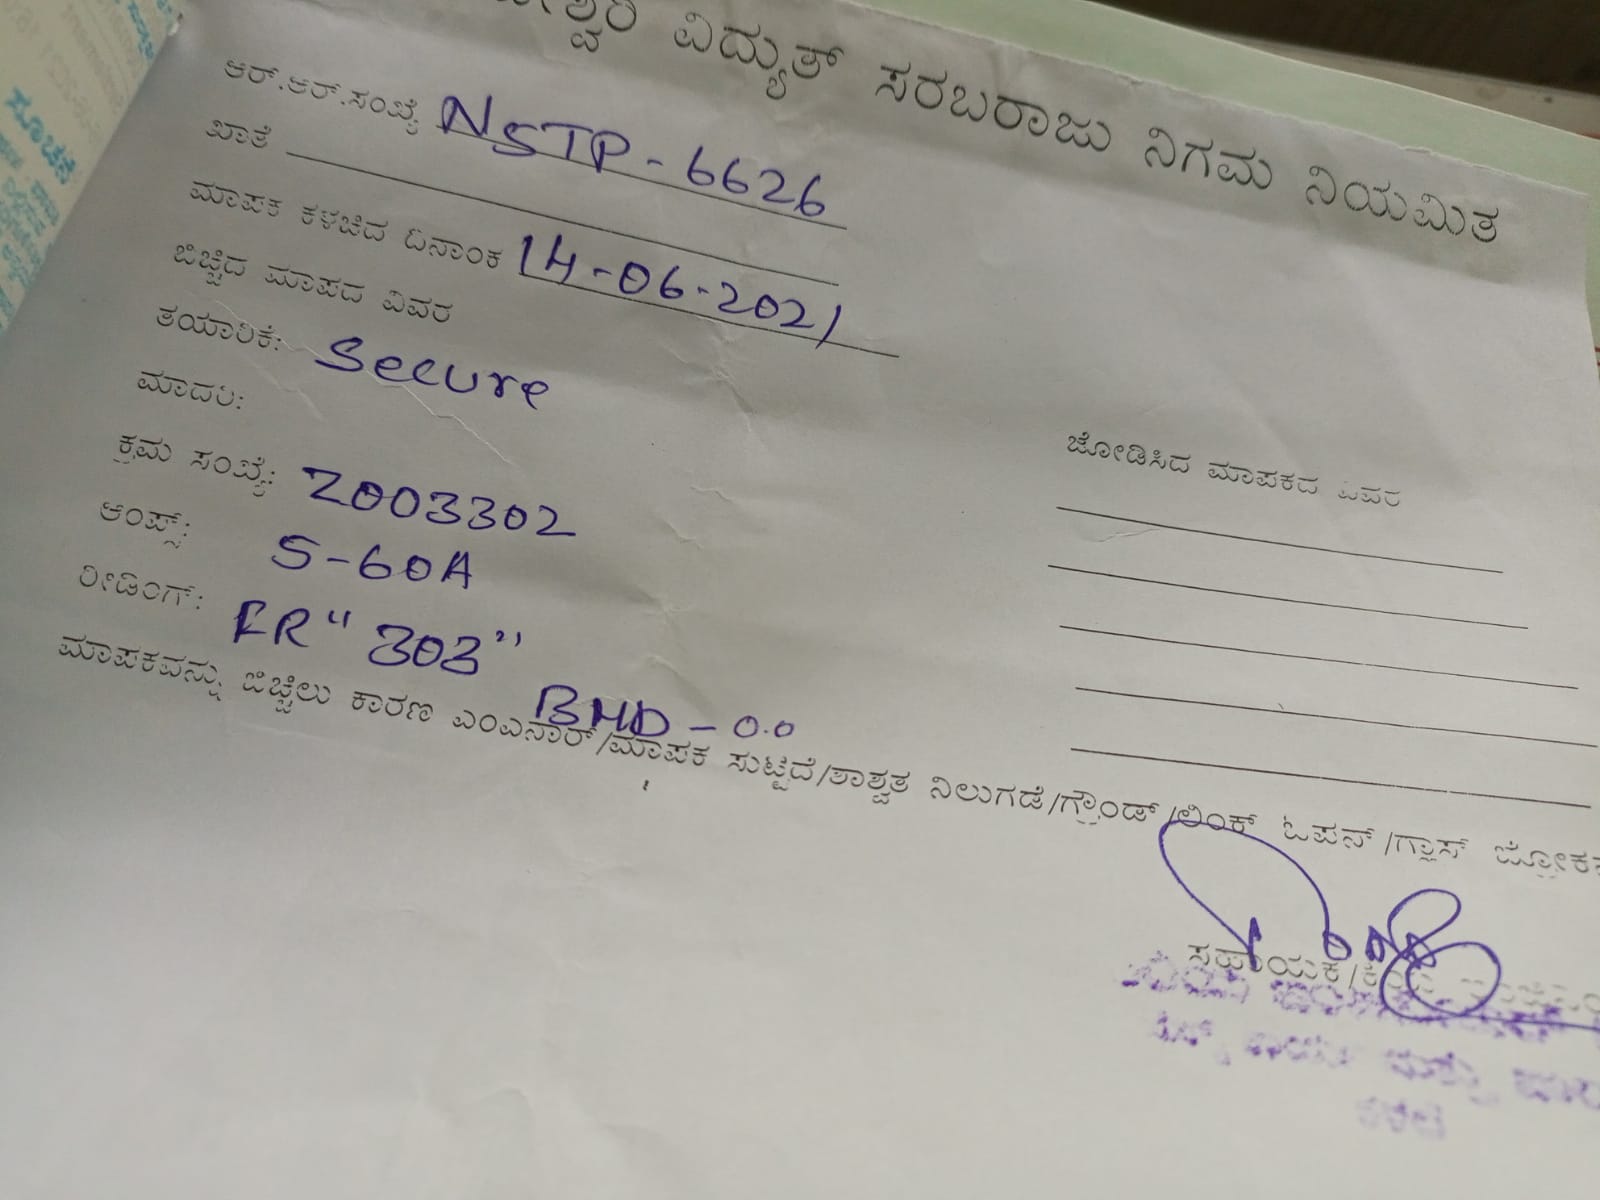 ವಿದ್ಯುತ್ ಸರಬರಾಜು ನಿಗಮ ನಿಯಮಿತ
ಆರ್.ಆರ್.ಸಂಖ್ಯೆ NSTP-6626
ಖಾತೆ
ಮಾಪಕ ಕಳಚಿದ ದಿನಾಂಕ 14-06-2021
ಬಿಚ್ಚಿದ ಮಾಪದ ವಿವರ
ತಯಾರಿಕೆ: Secure
ಮಾದರಿ:
ಜೋಡಿಸಿದ ಮಾಪಕದ ವಿವರ
ಕ್ರಮ ಸಂಖ್ಯೆ: 2003302
ಆಂಪ್ಸ್: 5-60A
ರೀಡಿಂಗ್: FR "303"
BMD - 0.0
ಮಾಪಕವನ್ನು ಬಿಚ್ಚಿಲು ಕಾರಣ ಎಂಎನಾರ್/ಮಾಪಕ ಸುಟ್ಟಿದೆ/ಶಾಶ್ವತ ನಿಲುಗಡೆ/ಗ್ರೌಂಡ್/ಲಿಂಕ್ ಓಪನ್/ಗ್ಲಾಸ್
ಸಹಾಯಕ/
ಸೂಚಕ